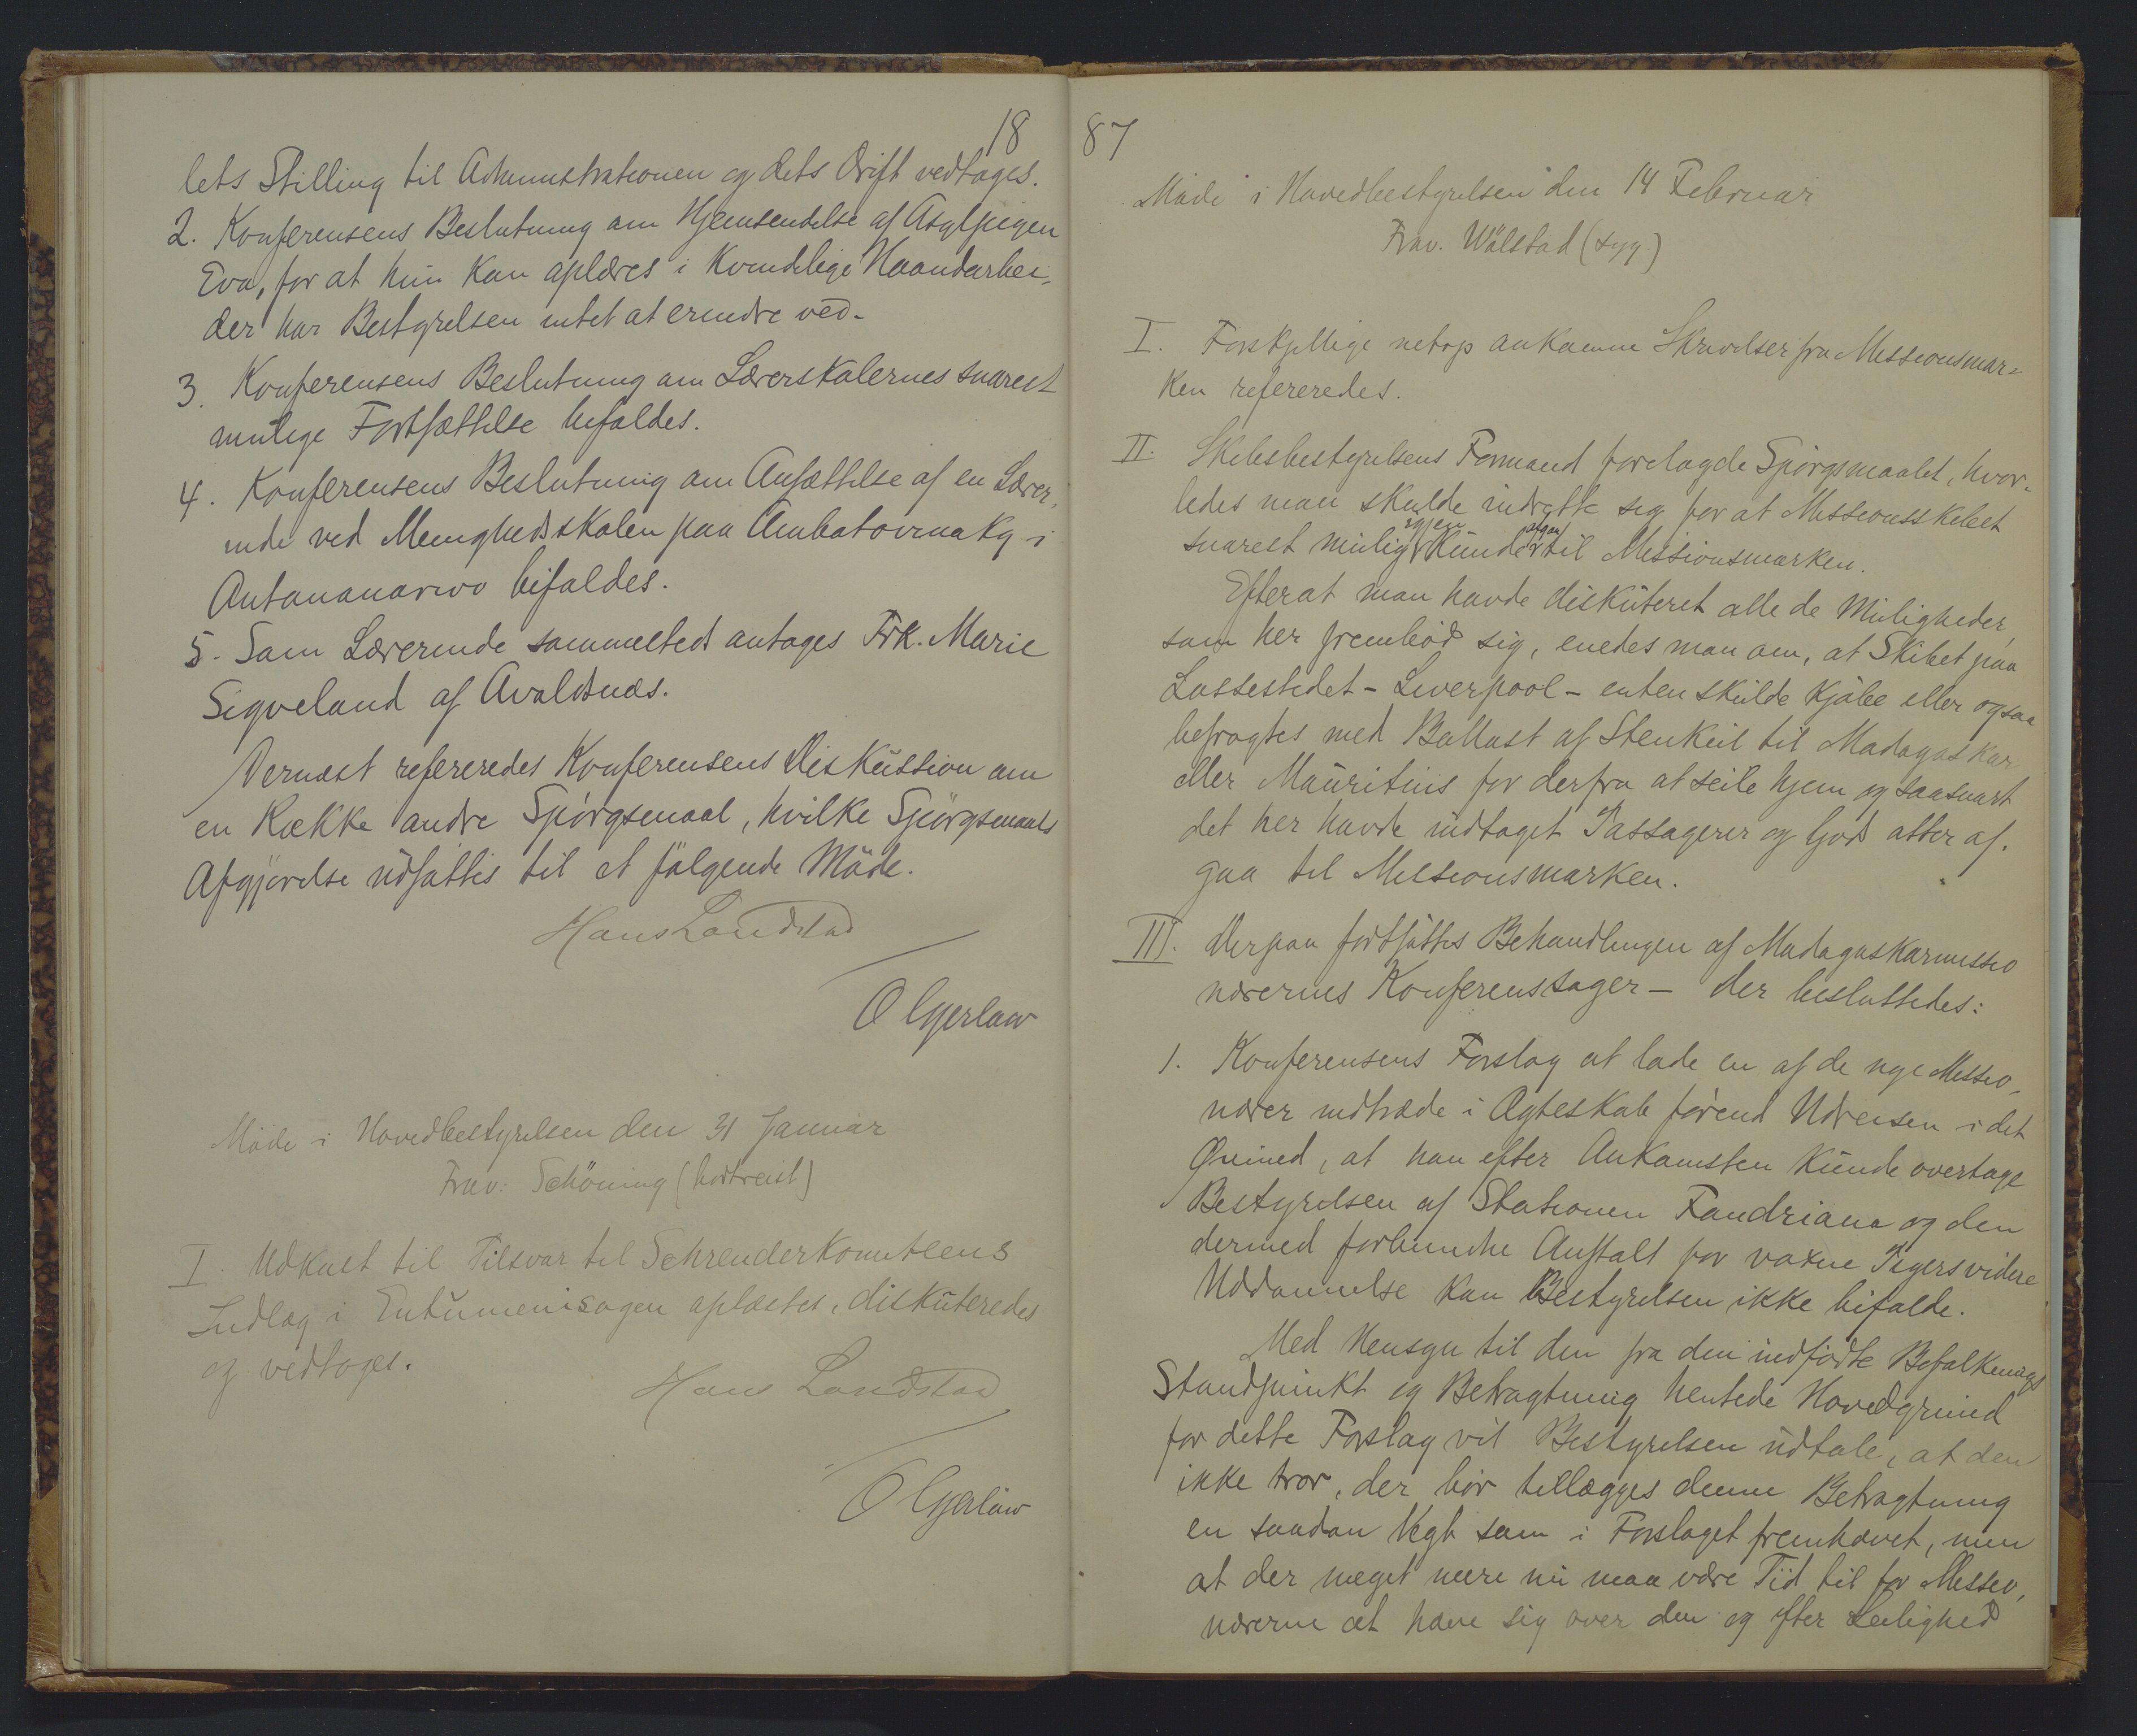 18
lets Stilling til Administrationen og dets Drift vedtoges.
2. Konferensens Beslutning om Hjemsendelse af Asylpigen
Eva, for at hun kan oplæres i kvindelige Haandarbei-
der har Bestyrelsen intet at erindre ved.
3. Konferensens Beslutning om Lærerskolernes snarest
mulige Fortsættelse bifaldes.
4. Konferensens Beslutning om Ansættelse af en Lærer-
inde ved Menighedsskolen paa Ambatovinaky i
Antananarivo bifaldes.
5. Som Lærerinde sammesteds antages Frk. Marie
Sigveland af Avaldsnæs.
Dernæst refereredes Konferensens Diskussion om
en Række andre Spörgsmaal, hvilke Spörgsmaals
Afgjörelse udsattes til et fölgende Möde.
Hans Landstad
O Gjerløw
Möde i Hovedbestyrelsen den 31 Januar
Frav: Schöning (bortreist)
I. Udkast til Tilsvar til Schreuderkomiteens
Indlæg i Entumenisagen oplæstes, diskuteredes
og vedtoges.
Hans Landstad
O Gjerløw
87
Möde i Hovedbestyrelsen den 14 Februar
Frav. Wälstad (syg.)
I. Forskjellige netop ankomne Skrivelser fra Missionsmar-
ken refereredes.
II. Skibsbestyrelsens Formand forelagde Spörgsmaalet, hvor-
ledes man skulde indrette sig for at Missionsskibet
snarest mulig igjen kunde afgaa til Missionsmarken.
Efterat man havde diskuteret alle de Muligheder,
som her frembød sig, enedes man om, at Skibet paa
Lossestedet - Liverpool - enten skulde kjöbe eller ogsaa
befragtes med Ballast af Stenkul til Madagaskar
eller Mauritius for derfra at seile hjem og saasnart
det her havde indtaget Passagerer og Gods atter af-
gaa til Missionsmarken.
III. Derpaa fortsattes Behandlingen af Madagaskarmissio
nærernes Konferenssager - der besluttedes:
1. Konferensens Forslag at lade en af de nye Missio-
nærer indtræde i Ægteskab førend Udreisen i det
Øiemed, at han efter Ankomsten kunde overtage
Bestyrelsen af Stationen Fandriana og den
dermed forbundne Anstalt for voxne Pigers videre
Uddannelse kan Bestyrelsen ikke bifalde.
Med Hensyn til den fra den indfødte Befolknings
Standpunkt og Betragtning hentede Hovedgrund
for dette Forslag vil Bestyrelsen udtale, at den
ikke tror, der bör tillægges denne Betragtning
en saadan Vegt som i Forslaget fremhævet, men
at der meget mere nu maa være Tid til for Missio-
nærerne at hæve sig over den og efter Leilighed